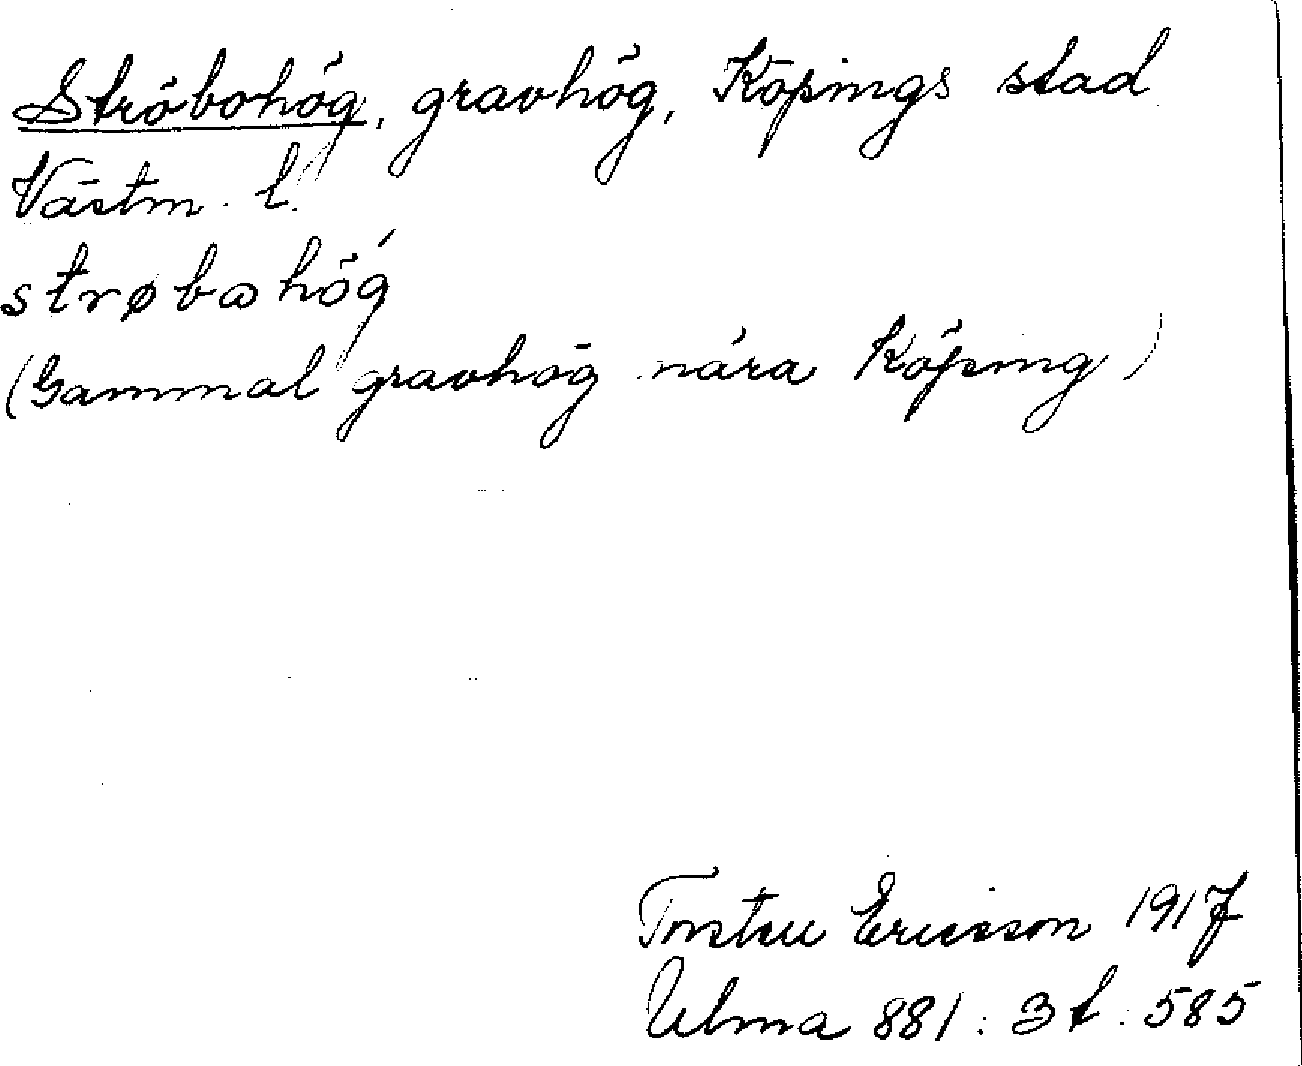 Ströbohög, gravhög, Köpings stad
Västm. l.
strøbω hög´
(Gammal gravhög nära Köping)
Torsten Ericsson 1917
Ulma 881 : 3 t. 585